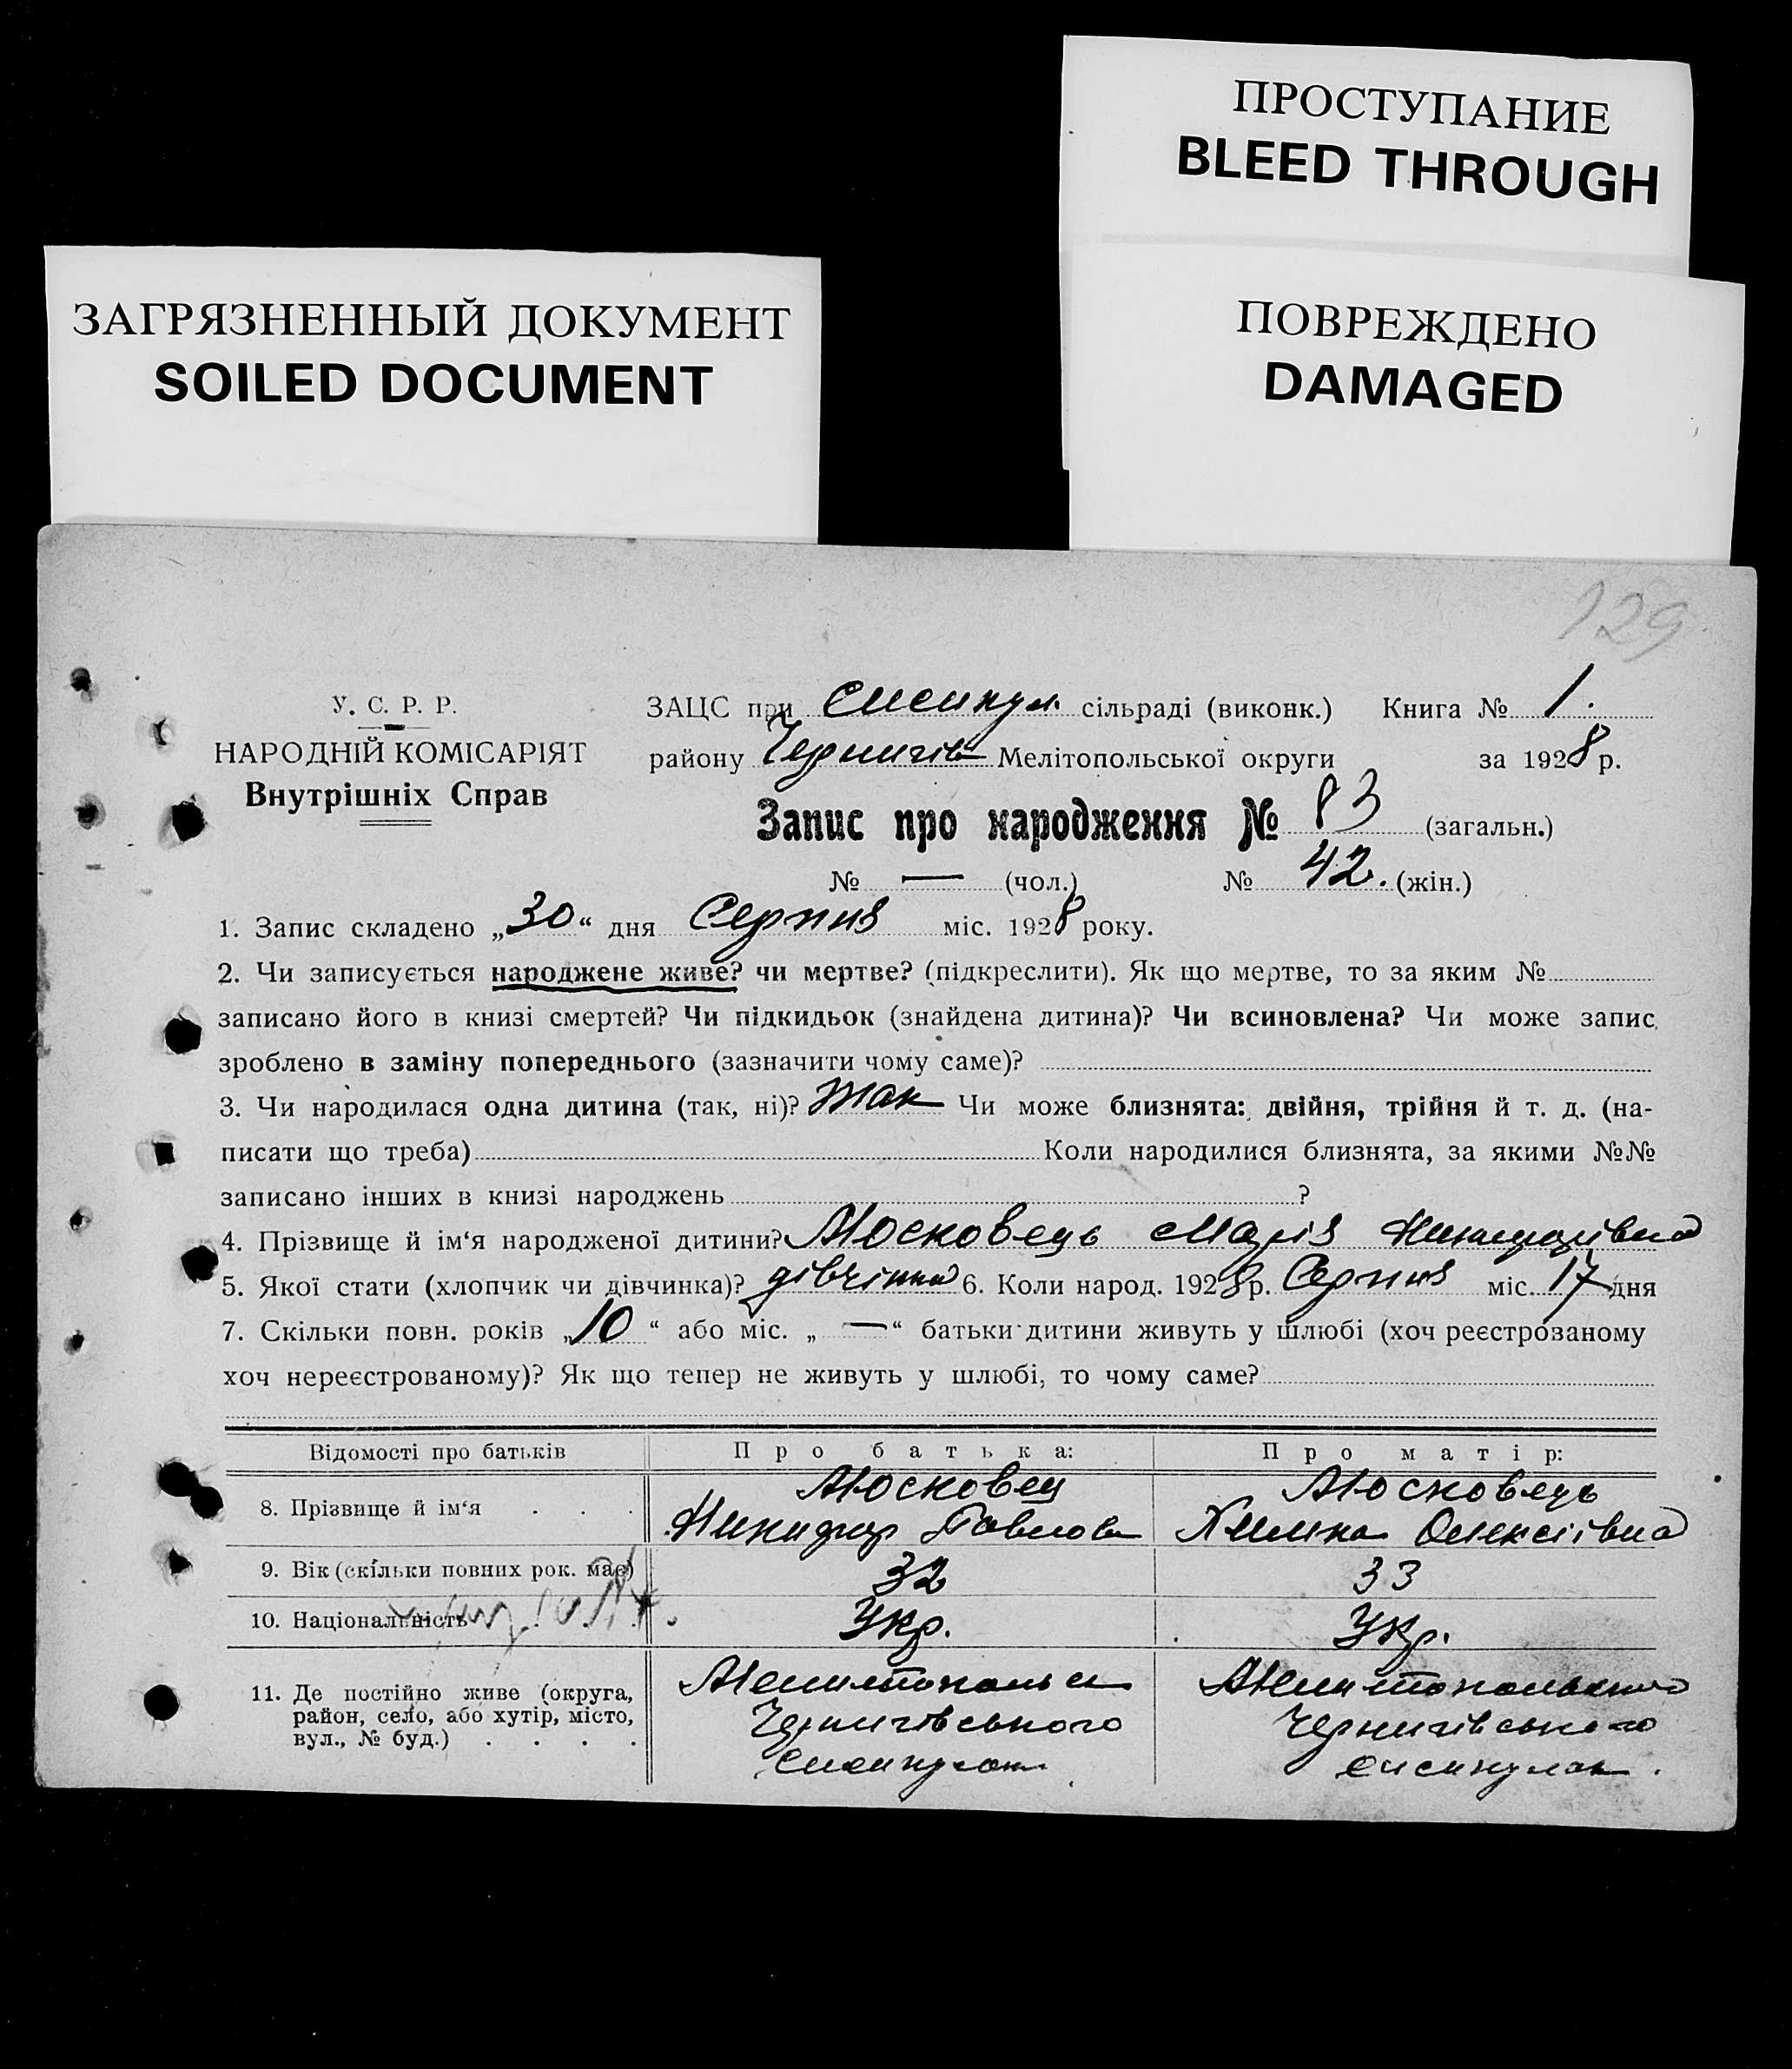 ПРОСТУПАНИЕ
BLEED THROUGH
ЗАГРЯЗНЕННЫЙ ДОКУМЕНТ
SOILED DOCUMENT
ПОВРЕЖДЕНО
DAMAGED
129
У. С. Р. Р.
НАРОДНІЙ КОМІСАРІЯТ
Внутрішніх Справ
ЗАЦС при сільраді (виконк.) Книга № 1.
району Чернигів Мелітопольської округи за 1928 р.
Запис про народження № 83 (загальн.)
№ — (чол.) № 42. (жін.)
1. Запис складено „30“ дня Серпня міс. 1928 року.
2. Чи записується народжене живе? чи мертве? (підкреслити). Як що мертве, то за яким №
записано його в книзі смертей? Чи підкидьок (знайдена дитина)? Чи всиновлена? Чи може запис
зроблено в заміну попереднього (зазначити чому саме)?
3. Чи народилася одна дитина (так, ні)? Так Чи може близнята: двійня, трійня й т. д. (на-
писати що треба) Коли народилися близнята, за якими №№
записано інших в книзі народжень ?
4. Прізвище й ім‘я народженої дитини? Московець Марія
5. Якої стати (хлопчик чи дівчинка)? дівчінка 6. Коли народ. 1928 р. Серпня міс. 17 дня
7. Скільки повн. років „10“ або міс. „—“ батьки дитини живуть у шлюбі (хоч реєстрованому
хоч нереєстрованому)? Як що тепер не живуть у шлюбі, то чому саме?
Відомості про батьків Про батька: Про матір:
8. Прізвище й ім‘я . . . Московец Московець
Никифор Павлов Олексіівна
9. Вік (скільки повних рок. має) 32 33
10. Національність Укр. Укр.
11. Де постійно живе (округа,
район, село, або хутір, місто,
вул., № буд.) . . . .
Чернигівського
Чернигівського